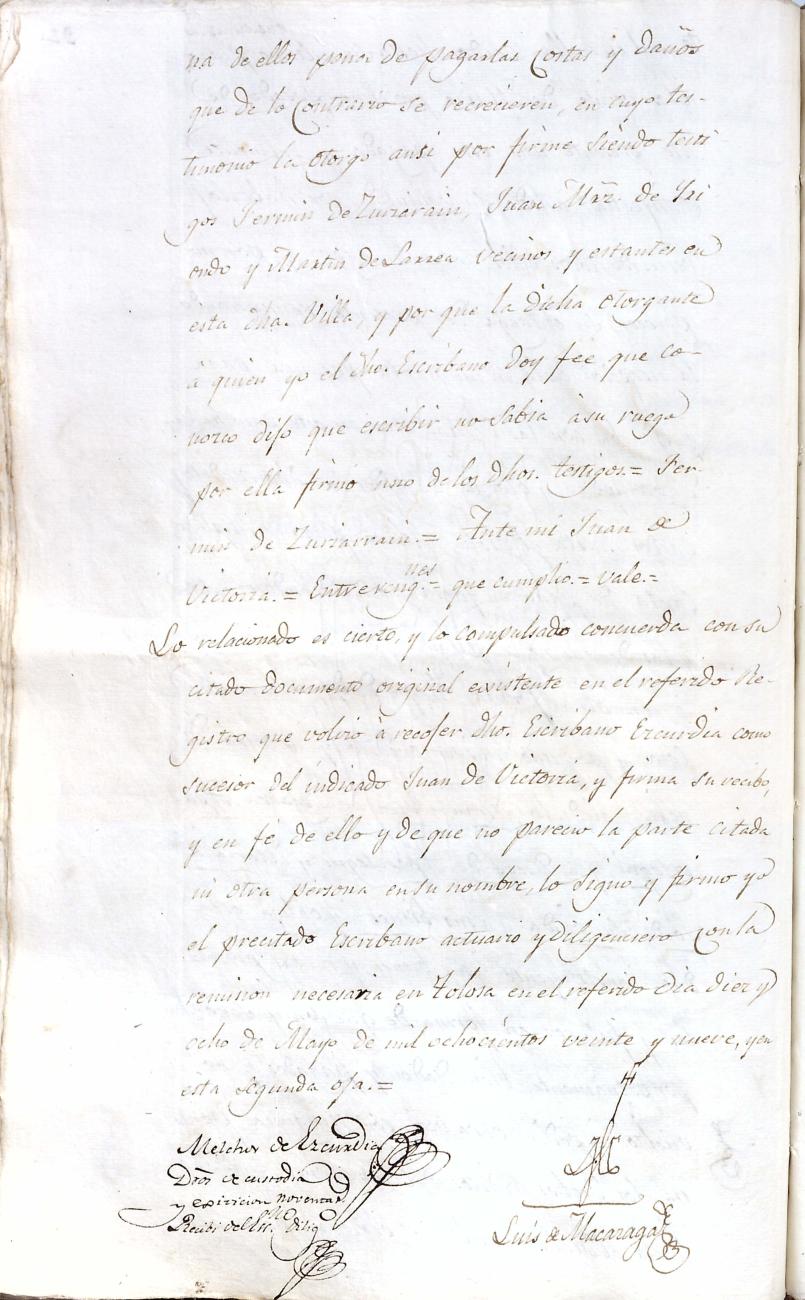 na de ellos pena de pagarlas costas y daños
que de lo contrario se recrecieren, en cuyo tes-
timonio la otorgo ansi por firme siendo testi
gos Fermin de Zuriarain, Juan Mrz. de Yri
ondo y Martin de Larrea vecinos y estantes en
esta dha. Villa, y por que la dicha otorgante
à quien yo el dho. Escribano doy fee que co-
nozco dijo que escribir no sabia à su ruego
por ella firmó uno de los dhos. testigos.= Fer-
min de Zuriarrain.= Ante mi Juan de
Victoria.= Entrerengnes.= que cumplio.= vale.=
Lo relacionado es cierto, y lo compulsado concuerda con su
citado documento original existente en el referido Re-
gistro que volvió à recojer dho. Escribano Ezcurdia como
sucesor del indicado Juan de Victoria, y firma su recibo,
y en fé de ello y de que no pareció la parte citada
ni otra persona en su nombre, lo signo y firmo yo
el precitado Escribano actuario y diligenciero con la
remision necesaria en Tolosa en el referido dia diez y
ocho de Mayo de mil ochocientos veinte y nueve, y en
esta segunda oja.=
Melchor de Ezcurdia
Dros de custodia
y exivicion noventa
Recibi del Esc.no dilig.o
Luis de Macaraga